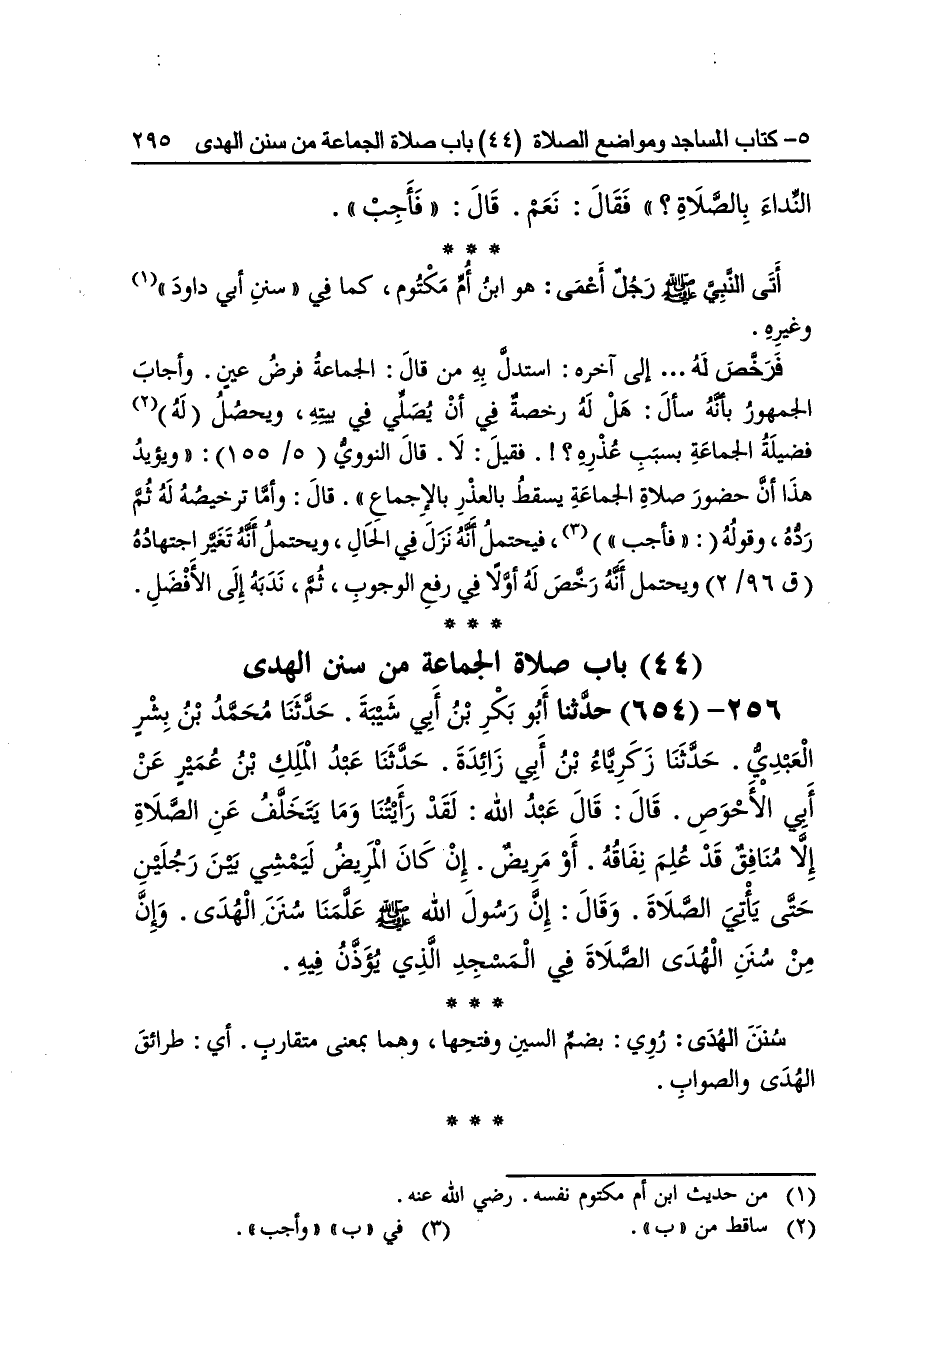 ٥- كتاب المساجد ومواضع الصلاة (٤٤) باب صلاة الجماعة من سنن الهدى ٢٩٥
النِّداءَ بِالصَّلَاةِ؟» فَقَالَ: نَعَمْ. قَالَ: «فَأَجِبْ».
* * *
أَتَى النَّبِيَّ ﷺ رَجُلٌ أَعْمَى: هو ابنُ أُمِّ مَكْتُومٍ، كما فِي «سننِ أبي داودَ»(١)
وغيرِهِ.
فَرَخَّصَ لَهُ... إلى آخره: استدلَّ بِهِ من قالَ: الجماعةُ فرضُ عينٍ. وأجابَ
الجمهورُ بأنَّهُ سألَ: هَلْ لَهُ رخصةٌ فِي أنْ يُصَلِّي فِي بيتِهِ، ويحصُلُ (لَهُ)(٢)
فضيلَةُ الجماعَةِ بسبَبِ عُذْرِهِ؟!. فقيلَ: لَا. قالَ النوويُّ (٥/ ١٥٥): «ويؤيدُ
هذَا أنَّ حضورَ صلاةِ الجماعَةِ يسقطُ بالعذرِ بالإجماعِ». قالَ: وأمَّا ترخيصُهُ لَهُ ثُمَّ
رَدُّهُ، وقولُهُ (: «فأجب»)(٣)، فيحتملُ أنَّهُ نَزَلَ فِي الحَالِ، ويحتملُ أنَّهُ تَغَيَّرَ اجتهادُهُ
(ق ٩٦/ ٢) ويحتمل أنَّهُ رَخَّصَ لَهُ أوَّلًا فِي رفعِ الوجوبِ، ثُمَّ، نَدَبَهُ إلَى الأَفْضَلِ.
* * *
(٤٤) باب صلاة الجماعة من سنن الهدى
٢٥٦- (٦٥٤) حدَّثنا أَبُو بَكْرِ بْنُ أَبِي شَيْبَةَ. حَدَّثَنَا مُحَمَّدُ بْنُ بِشْرٍ
الْعَبْدِيُّ. حَدَّثَنَا زَكَرِيَّاءُ بْنُ أَبِي زَائِدَةَ. حَدَّثَنَا عَبْدُ الْمَلِكِ بْنُ عُمَيْرٍ عَنْ
أَبِي الْأَحْوَصِ. قَالَ: قَالَ عَبْدُ الله: لَقَدْ رَأَيْتُنَا وَمَا يَتَخَلَّفُ عَنِ الصَّلَاةِ
إِلَّا مُنَافِقٌ قَدْ عُلِمَ نِفَاقُهُ. أَوْ مَرِيضٌ. إِنْ كَانَ الْمَرِيضُ لَيَمْشِي بَيْنَ رَجُلَيْنِ
حَتَّى يَأْتِيَ الصَّلَاةَ. وَقَالَ: إِنَّ رَسُولَ الله ﷺ عَلَّمَنَا سُنَنَ الْهُدَى. وَإِنَّ
مِنْ سُنَنِ الْهُدَى الصَّلَاةَ فِي الْمَسْجِدِ الَّذِي يُؤَذَّنُ فِيهِ.
* * *
سُنَنَ الهُدَى: رُوِي: بضمِّ السينِ وفتحِها، وهما بمعنى متقاربٍ. أي: طرائقَ
الهُدَى والصوابِ.
* * *
(١) من حديث ابن أم مكتوم نفسه. رضي الله عنه.
(٢) ساقط من «ب». (٣) في «ب» «وأجب».